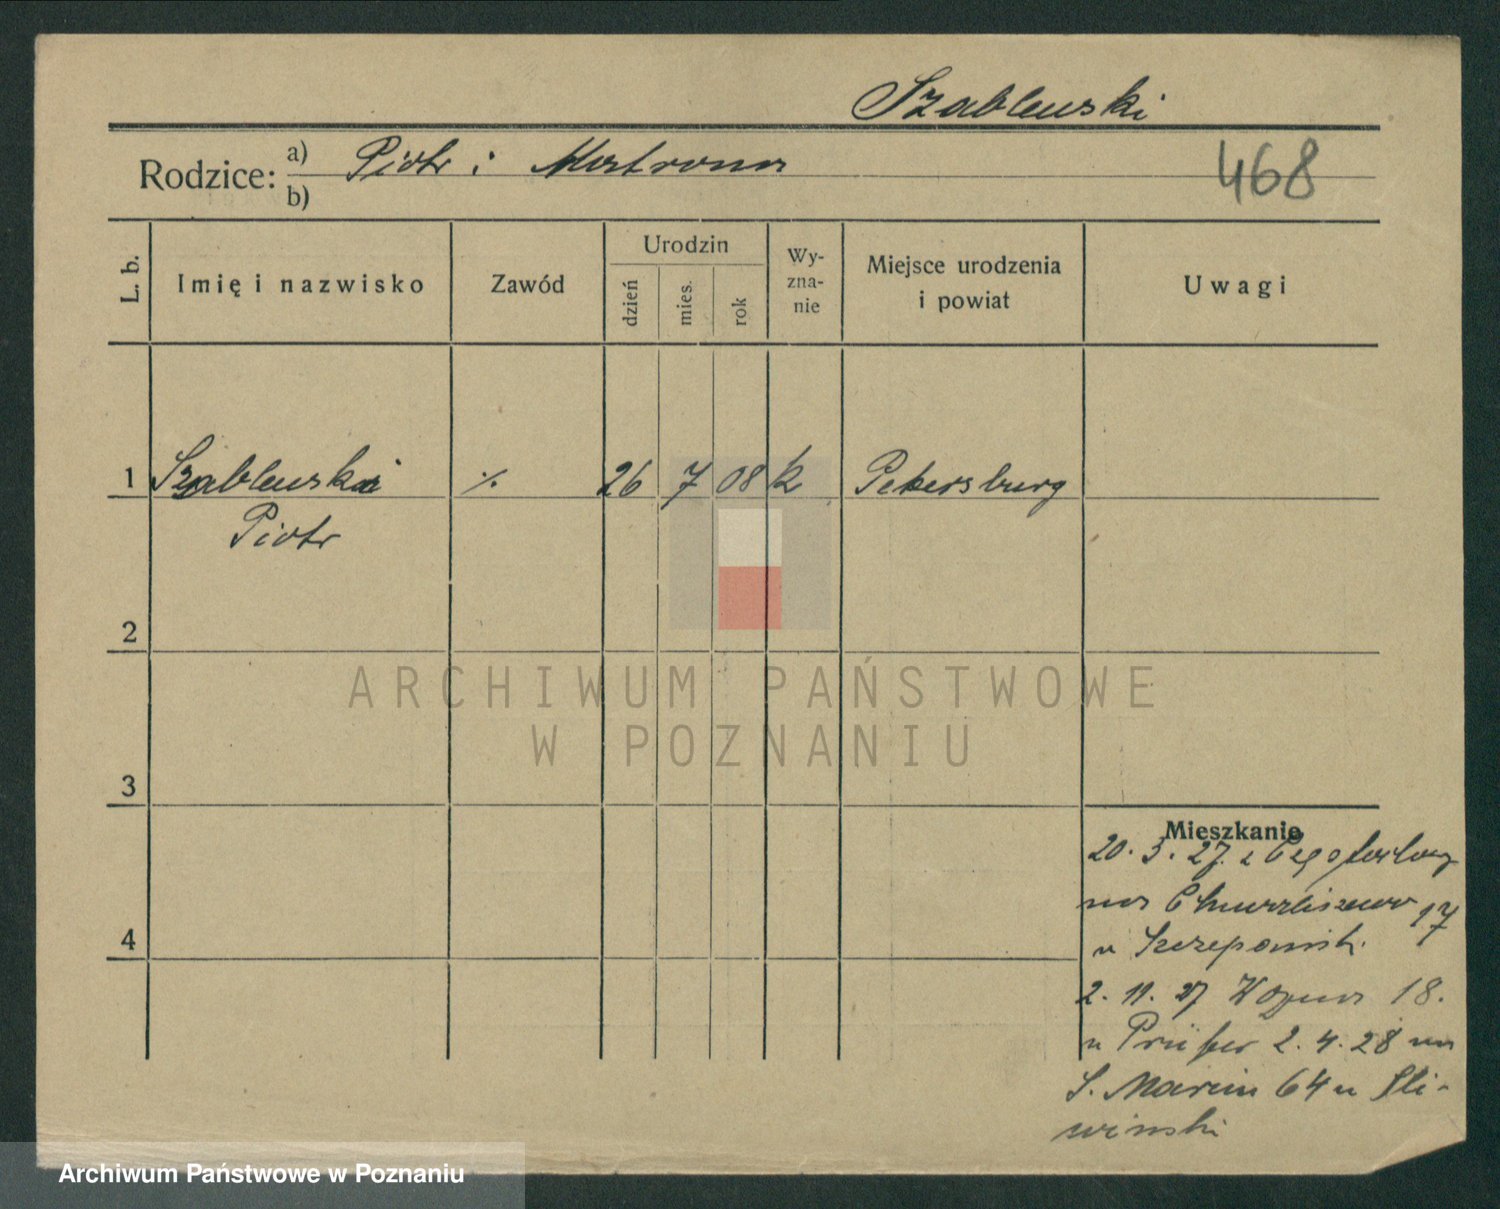 Szablewski
Rodzice: a) Piotr i Matrona
b)
468
L. b.
Imię i nazwisko
Zawód
Urodzin
dzień
mies.
rok
Wy-
zna-
nie
Miejsce urodzenia
i powiat
Uwagi
1 Szablewski % 26 7 08 k Petersburg
Piotr
2
ARCHIWUM PAŃSTWOWE
W POZNANIU
3
Mieszkanie
20. 3. 27. z
na 17
u Szczepański
2. 11. 27 18.
u Prüfer 2. 4. 28 na
S. Marcin 64 u Śli-
wiński
4
Archiwum Państwowe w Poznaniu